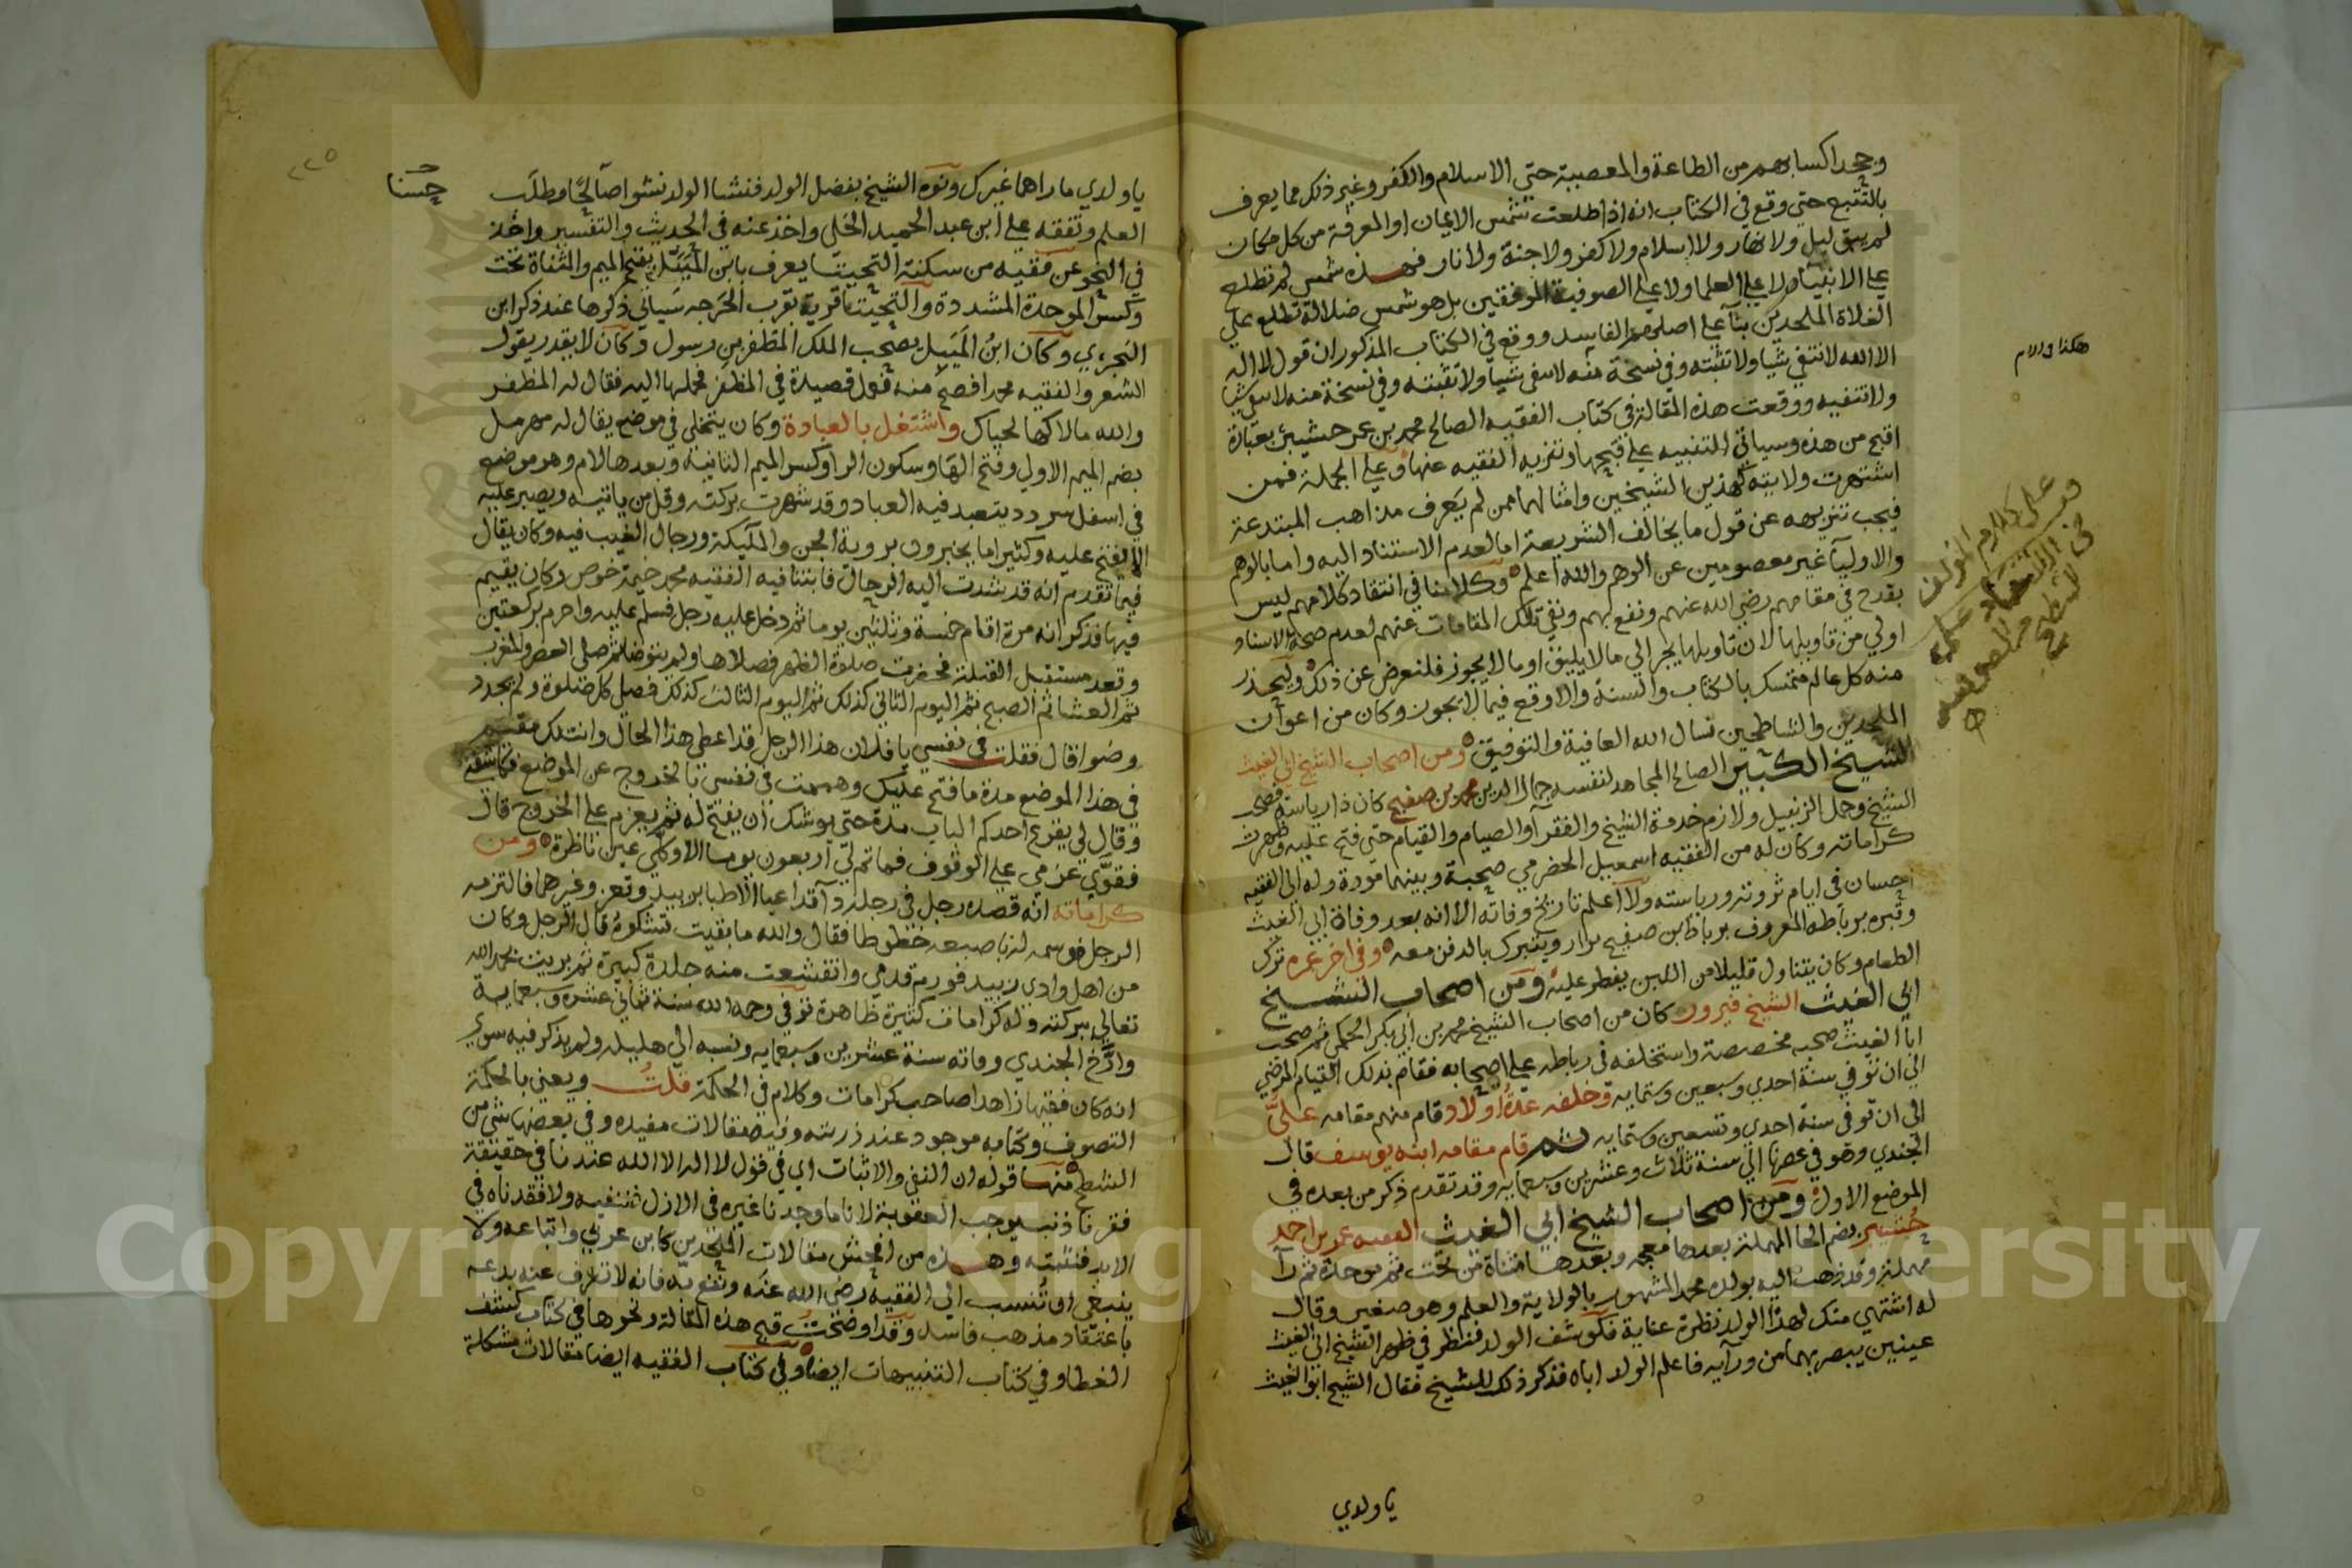 وجحد اكسابهم من الطاعة والمعصية حتى الاسلام والكفر وغير ذلك مما يعرف
بالتتبع حتى وقع في الكتاب انه اذا طلعت شمس الايمان او المعرفة من كل مكان
لم يبق ليل ولا نهار ولا اسلام ولا كفر ولا جنة ولا نار فهذه شمس لم تطلع
على الانبياء ولا على العلما ولا على الصوفية الموفقين بل هو شمس ضلالة تطلع على
الغلاة الملحدين بنآ على اصلهم الفاسد ووقع في الكتاب المذكور ان قول لا اله
الا الله لا تنتفي شيا ولا تثبته وفي نسخة منه لاسفى شيا ولا تثبته وفي نسخة منه
ولا تنفيه ووقعت هذه المقالة في كتاب الفقيه الصالح محمد بن عمر حشيبر بعبارة
اقبح من هذه وسياتي التنبيه على قبحها وتنزيه الفقيه عنها وعلى الجملة فمن
اشتهرت ولايته كهذين الشيخين وامثالهما ممن لم يعرف مذاهب المبتدعة
فيجب تنزيهه عن قول ما يخالف الشريعة اما لعدم الاستناد اليه واما بالوهم
والاوليآ غير معصومين عن الوهم والله اعلم وكلامنا في انتقاد كلامهم ليس
يقدح في مقامهم رضي الله عنهم ونفع بهم ونفي تلك المقامات عنهم لعدم صحة الاسناد
اولى من تاويلها لان تاويلها يجر الى ما لا يليق او ما لا يجوز فلنعرض عن ذلك وليحذر
منه كل عالم متمسك بالكتاب والسنة والا وقع فيما لا يجوز وكان من اعوان
الملحدين والشاطحين نسال الله العافية والتوفيق ومن اصحاب الشيخ ابي الغيث
الشيخ الكبير الصالح المجاهد لنفسه جمال الدين محمد بن صفيح كان ذا رياسة فصحب
الشيخ وحمل الزنبيل ولازم خدمة الشيخ والفقرآ والصيام والقيام حتى فتح عليه وظهرت
كراماته وكان له من الفقيه اسمعيل الحضرمي صحبة وبينهما مودة وله الى الفقيه
احسان في ايام ثروته ورياسته ولا اعلم تاريخ وفاته الا انه بعد وفاة ابي الغيث
وقبره برباطه المعروف برباط ابن صفيح يزار ويتبرك بالدفن معه وفي اخر عمره ترك
الطعام وكان يتناول قليلا من اللبن يفطر عليه ومن اصحاب الشيخ
ابي الغيث الشيخ فيروز كان من اصحاب الشيخ محمد بن ابي بكر الحكمي ثم صحب
ابا الغيث صحبه مخصصة واستخلفه في رباطه على اصحابه فقام بذلك القيام المرضي
الى ان توفي سنة احدى وسبعين وستمايه وخلفه عدة اولاد قام منهم مقامه علي
الى ان توفي سنة احدى وتسعين وستمايه ثم قام مقامه ابنه يوسف قال
الجندي وهو في عصرنا الى سنة ثلاث وعشرين وسبعمايه وقد تقدم ذكر من بعده في
الموضع الاول ومن اصحاب الشيخ ابي الغيث الفقيه عمر بن احمد
حشيبر بضم الحا المهملة بعدها معجمه وبعدها مثناة من تحت ثم موحدة ثم رآ
مهملة وقد ذهب اليه بولده محمد المشهور بالولاية والعلم وهو صغير وقال
له اشتهي منك لهذا الولد نظرة عناية فكوشف الولد فنظر في ظهر الشيخ ابي الغيث
عينين يبصر بهما من ورآيه فاعلم الولد اباه فذكر ذلك للشيخ فقال الشيخ ابو الغيث
يا ولدي
هكذا والام
يا ولدي ما راهما غيرك ونوه الشيخ بفضل الولد فنشا الولد نشوا صالحا وطلب
حسنا
العلم وتفقه على ابن عبد الحميد الخلي واخذ عنه في الحديث والتفسير واخذ
في النحو عن فقيه من سكنة التحيتا يعرف بابن المبيل بفتح الميم والمثناة تحت
وكسر الموحدة المشددة والتحيتا قرية تقرب الحرجه سياتي ذكرها عند ذكر ابن
النحوي وكان ابن المبيل يصحب الملك المظفر بن رسول وكان لا يقدر يقول
الشعر والفقيه محمد افصح منه فعمل قصيدة في المظفر فحملها اليه فقال له المظفر
والله ما لاكها لحياك واشتغل بالعبادة وكان يتخلى في موضع يقال له مهرمل
بضم الميم الاولى وفتح الها وسكون الرا وكسر الميم الثانيه وبعدها لام وهو موضع
في اسفل سردد يتعبد فيه العباد وقد شهرت بركته وقل من ياتيه ويصبر عليه
الا فتح عليه وكثيرا ما يخبرون بروية الجن والملائكة ورجال الغيب فيه وكان يقال
فيما تقدم انه قد شدت اليه الرحال فابتنا فيه الفقيه محمد خيمة خوص وكان يقيم
فيها فذكر انه مرة اقام خمسة وثلثين يوما ثم دخل عليه رجل فسلم عليه واحرم بركعتين
وقعد مستقبل القبلة فحضرت صلوة الظهر فصلاها ولم يتوضا ثم صلى العصر والمغرب
ثم العشا ثم الصبح ثم اليوم الثاني كذلك ثم اليوم الثالث كذلك فصلى كل صلوة ولم يجدد
وضوا قال فقلت في نفسي يا فلان هذا الرجل قد اعطي هذا الحال وانت لك مقيم
في هذا الموضع مدة ما فتح عليك وهممت في نفسي بالخروج عن الموضع فكاشفني
وقال لي يقرع احدكم الباب مدة حتى يوشك ان يفتح له ثم يعزم على الخروج قال
فقوي عزمي على الوقوف فما تم لي اربعون يوما الا وكلي عين ناظرة ومن
كراماته انه قصده رجل في رجله دآ قد اعيا الاطبا بزبيد وتعز وغيرهما فالتزمه
الرجل فوسمه له باصبعه خطوطا فقال والله ما بقيت تشكوه قال الرجل وكان
من اهل وادي زبيد فورم قدمي وانقشعت منه جلدة كبيرة ثم بريت بحمد الله
تعالى ببركته وله كرامات كثيرة ظاهرة توفي رحمه الله سنة ثماني عشرة وسبعماية
وارخ الجندي وفاته سنة عشرين وسبعمايه ونسبه الى هليله ولم يذكر فيه سوى
انه كان فقيها زاهدا صاحب كرامات وكلام في الحكمة قلت ويعني بالحكمة
التصوف وكتابه موجود عند ذريته وفيه مقالات مفيده وفي بعضها شي من
الشطح منها قوله ان النفي والاثبات اي في قول لا اله الا الله عندنا في حقيقة
فقرنا ذنب يوجب العقوبة لاننا ما وجدنا غيره في الازل فننفيه ولا فقدناه في
الابد فنثبته وهذه من افحش مقالات الملحدين كابن عربي واتباعه ولا
ينبغي ان تنسب الى الفقيه رضي الله عنه ونفع به فانه لا تعرف عنه بدعه
باعتقاد مذهب فاسد وقد اوضحت قبح هذه المقالة ونحوها في كتاب كشف
الغطا وفي كتاب التنبيهات ايضا وفي كتاب الفقيه ايضا مقالات مشكلة
Copyright © King Saud University